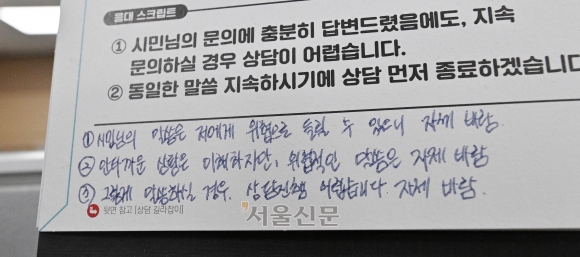 응대 스크립트
① 시민님의 문의에 충분히 답변드렸음에도, 지속
문의하실 경우 상담이 어렵습니다.
② 동일한 말씀 지속하시기에 상담 먼저 종료하겠습니다
① 시민님의 말씀은 저에게 위협으로 들릴 수 있으니 자제 바람.
② 안타까운 상황은 이해하지만, 위협적인 말씀은 자제 바람
③ 그렇게 말씀하실 경우, 상담진행 어렵습니다. 자제 바람.
뒷면 참고 [상담 길라잡이]
서울신문